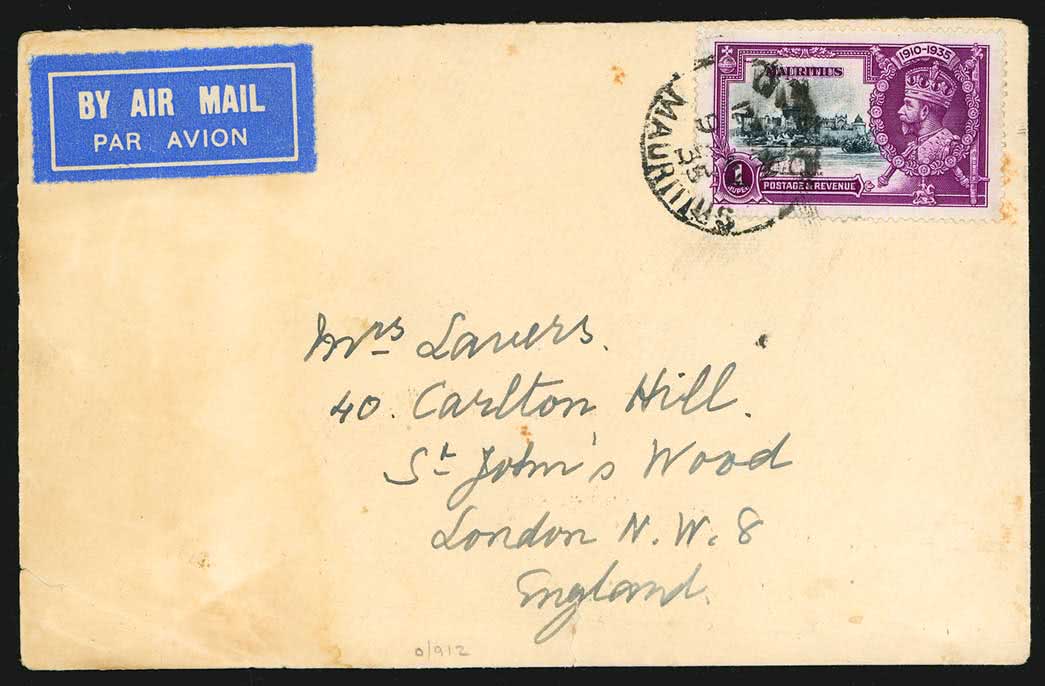 BY AIR MAIL
PAR AVION
1910-1935
MAURITIUS
1
RUPEE
POSTAGE & REVENUE
MAURITIUS
35
Mrs Lavers.
40. Carlton Hill.
St John's Wood
London N.W. 8
England.
0/912